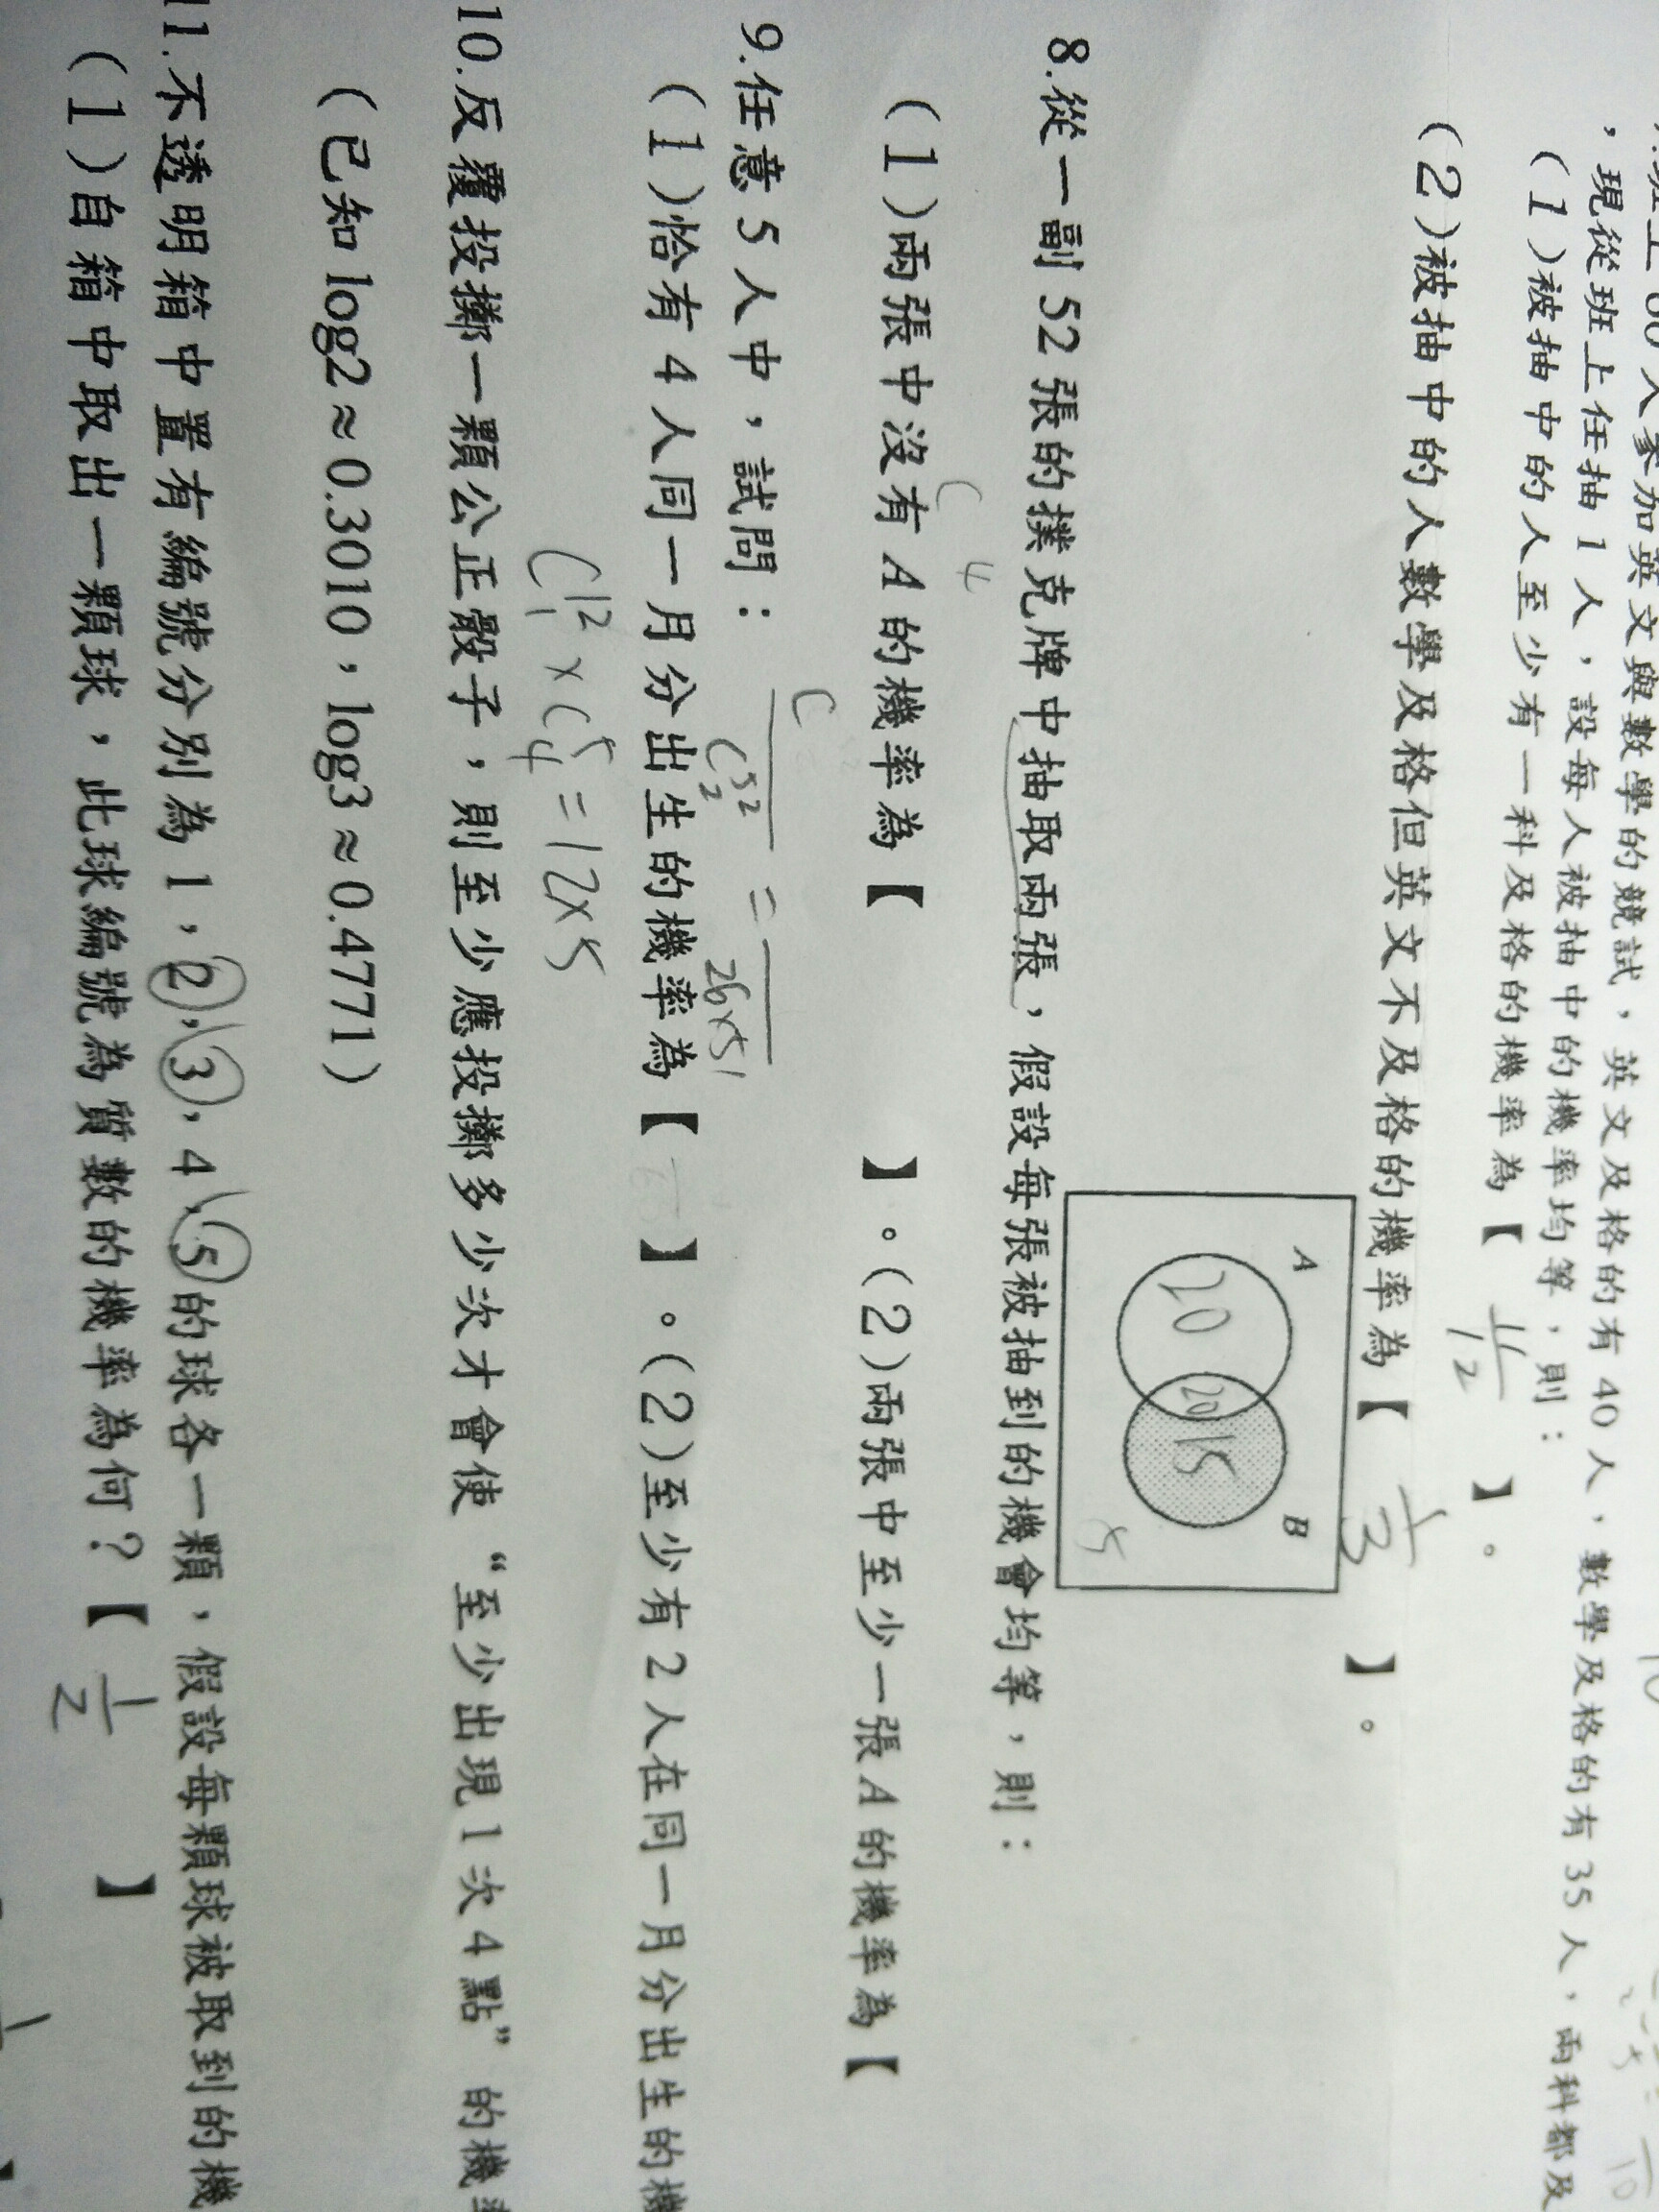 班上60人參加英文與數學的競試，英文及格的有40人，數學及格的有35人，兩科都及
，現從班上任抽1人，設每人被抽中的機率均等，則：
(1)被抽中的人至少有一科及格的機率為【 11/12 】。
(2)被抽中的人數學及格但英文不及格的機率為【 1/3 】。
A B
20 20 15
5
8.從一副52張的撲克牌中抽取兩張，假設每張被抽到的機會均等，則：
(1)兩張中沒有A的機率為【 】。(2)兩張中至少一張A的機率為【
C 4
C
C 52 2 = 26×51
9.任意5人中，試問：
(1)恰有4人同一月分出生的機率為【 】。(2)至少有2人在同一月分出生的機
C 12 1 × C 5 4 = 12×5
10.反覆投擲一顆公正骰子，則至少應投擲多少次才會使“至少出現1次4點”的機率
(已知log2≈0.3010，log3≈0.4771)
11.不透明箱中置有編號分別為1，2，3，4，5的球各一顆，假設每顆球被取到的機
(1)自箱中取出一顆球，此球編號為質數的機率為何？【 1/2 】